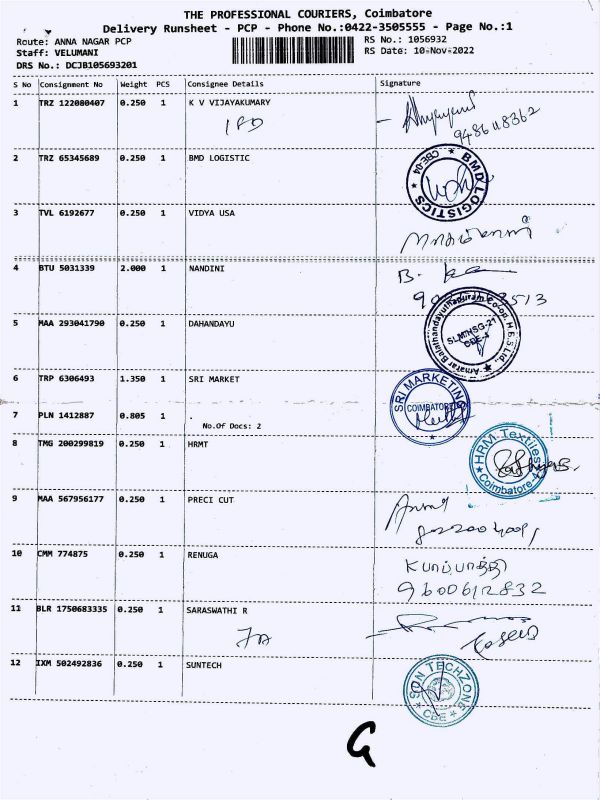 THE PROFESSIONAL COURIERS, Coimbatore
Delivery Runsheet - PCP - Phone No.:0422-3505555 - Page No.:1
Route: ANNA NAGAR PCP
RS No.: 1056932
Staff: VELUMANI
RS Date: 10-Nov-2022
DRS No.: DCJB105693201
S No Consignment No Weight PCS Consignee Details Signature
1 TRZ 122080407 0.250 1 K V VIJAYAKUMARY
2 TRZ 65345689 0.250 1 BMD LOGISTIC
BMD LOGISTICS CBE-04
3 TVL 6192677 0.250 1 VIDYA USA
4 BTU 5031339 2.000 1 NANDINI
B.
5 MAA 293041790 0.250 1 DAHANDAYU
6 TRP 6306493 1.350 1 SRI MARKET
SRI MARKETING
COIMBATORE
7 PLN 1412887 0.805 1 .
No.Of Docs: 2
8 TMG 200299819 0.250 1 HRMT
HRM Textiles
Coimbatore
9 MAA 567956177 0.250 1 PRECI CUT
10 CMM 774875 0.250 1 RENUGA
9600612832
11 BLR 1750683335 0.250 1 SARASWATHI R
12 IXM 502492836 0.250 1 SUNTECH
SUN TECHZONE
CBE
G